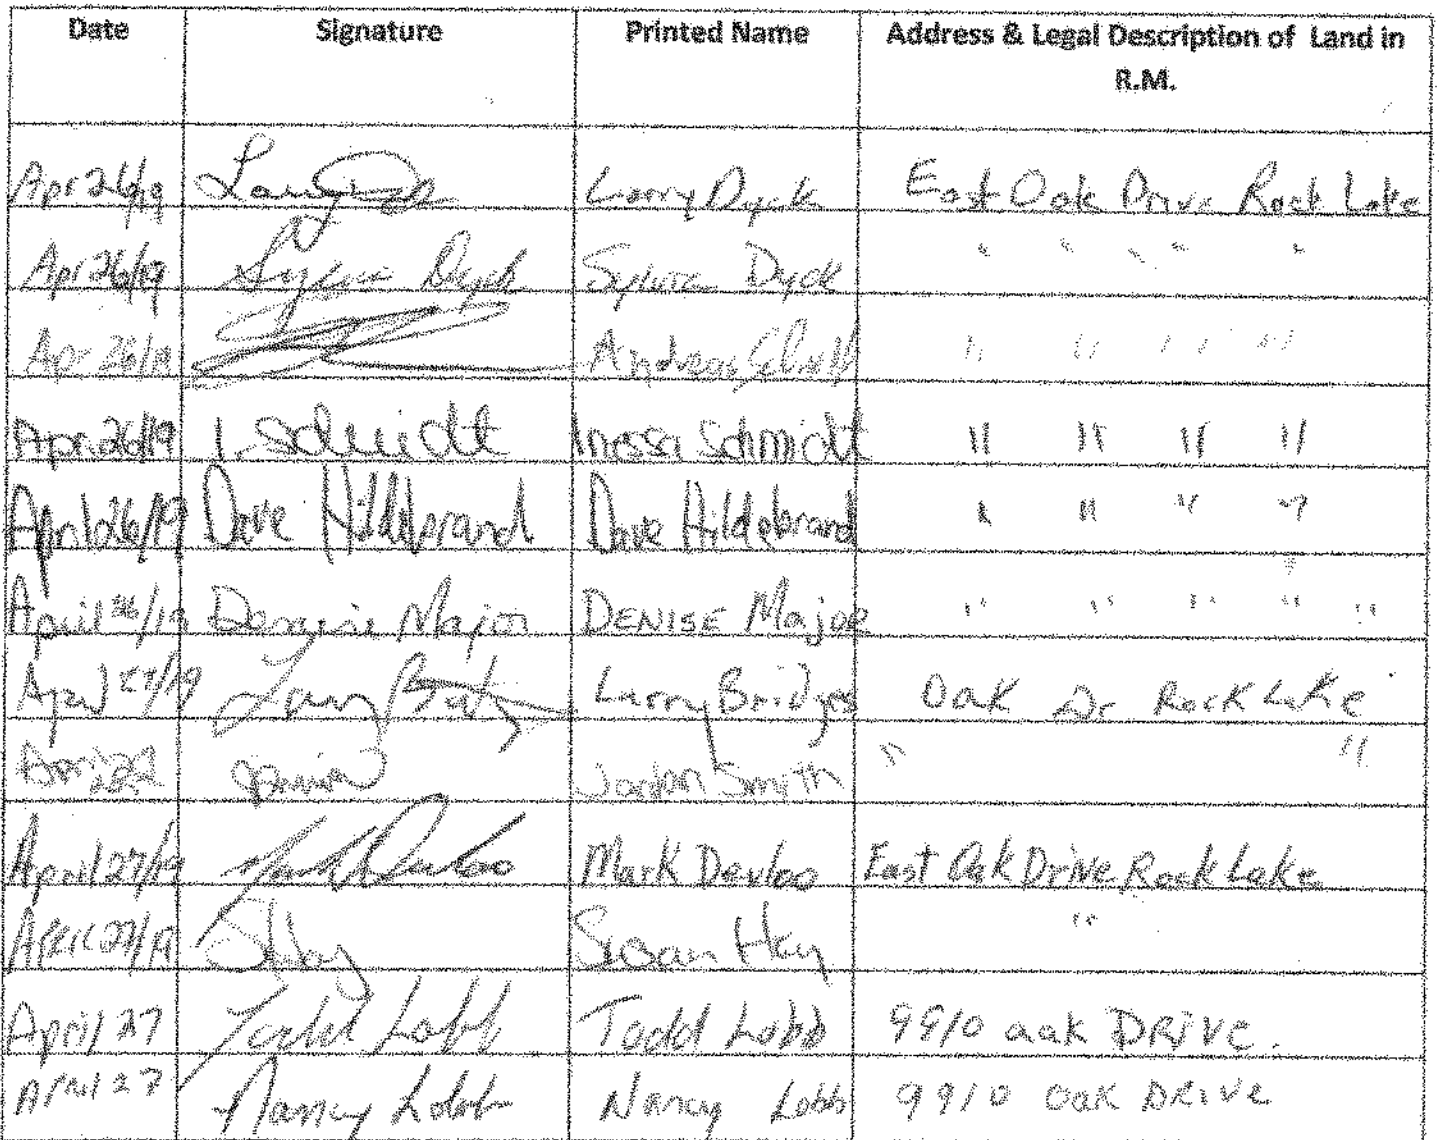 Date Signature Printed Name Address & Legal Description of Land in R.M.
Apr 26/19 Larry Dyck East Oak Drive Rock Lake
Apr 26/19 Sylvia Dyck Sylvia Dyck " " " " "
Apr 26/19 Andreas " " " "
Apr. 26/19 I. Schmidt Inessa Schmidt " " " "
April 26/19 Dave Hildebrand Dave Hildebrand " " " "
April 26/19 Denise Major DENISE Major " " " " "
April 27/19 Larry Larry Bridges Oak Dr Rock Lake
April Jordan Smith " "
April 27/19 Mark Devloo Mark Devloo East Oak Drive Rock Lake
APRIL 27/19 SHay Susan Hay "
April 27 Todd Lobb Todd Lobb 9910 oak DRive.
April 27 Nancy Lobb Nancy Lobb 9910 oak DRive